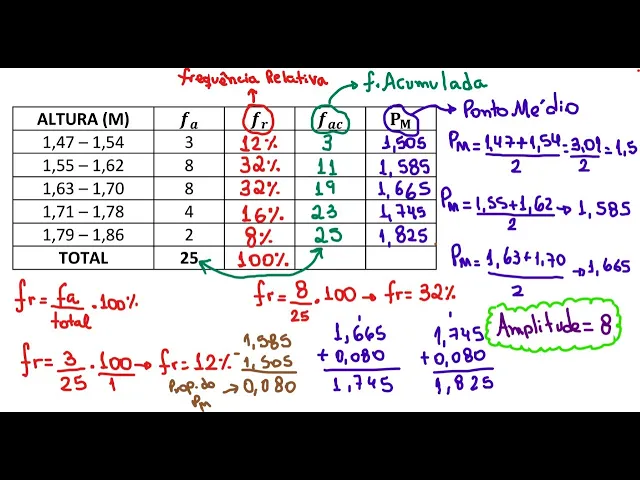 frequência Relativa
f. Acumulada
Ponto Médio
ALTURA (M) fa fr fac PM
1,47 – 1,54 3 12% 3 1,505
1,55 – 1,62 8 32% 11 1,585
1,63 – 1,70 8 32% 19 1,665
1,71 – 1,78 4 16% 23 1,745
1,79 – 1,86 2 8% 25 1,825
TOTAL 25 100%
PM = 1,47+1,54/2 = 3,01/2 = 1,5
PM = 1,55+1,62/2 → 1,585
PM = 1,63+1,70/2 → 1,665
fr = fa/total . 100%
fr = 8/25 . 100 → fr = 32%
Amplitude = 8
fr = 3/25 . 100/1 → fr = 12%
1,585
- 1,505
Prop. do PM → 0,080
1,665
+ 0,080
1,745
1
1,745
+ 0,080
1,825